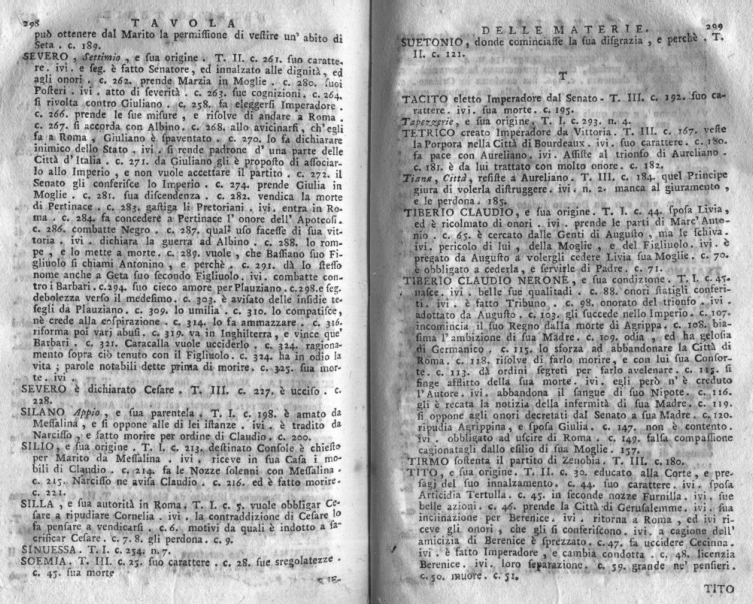 298 TAVOLA
può ottenere dal Marito la permissione di vestire un' abito di
Seta . c. 189.
SEVERO, Settimio, e sua origine . T. II. c. 261. suo caratte-
re. ivi. e seg. è fatto Senatore, ed innalzato alle dignità, ed
agli onori. c. 262. prende Marzia in Moglie . c. 280. suoi
Posteri . ivi. atto di severità . c. 263. sue cognizioni. c. 264.
si rivolta contro Giuliano . c. 258. fa eleggersi Imperadore .
c. 266. prende le sue misure, e risolve di andare a Roma .
c. 267. si accorda con Albino. c. 268. allo avicinarsi, ch' egli
fa a Roma, Giuliano è spaventato . c. 270. lo fa dichiarare
inimico dello Stato . ivi . si rende padrone d' una parte delle
Città d' Italia . c. 271. da Giuliano gli è proposto di associar-
lo allo Imperio, e non vuole accettare il partito . c. 272. il
Senato gli conferisce lo Imperio . c. 274. prende Giulia in
Moglie . c. 281. sua discendenza . c. 282. vendica la morte
di Pertinace . c. 283. gastiga li Pretoriani . ivi. entra in Ro-
ma . c. 284. fa concedere a Pertinace l' onore dell' Apoteosi .
c. 286. combatte Negro . c. 287. qual' uso facesse di sua vit-
toria . ivi . dichiara la guerra ad Albino . c. 288. lo rom-
pe, e lo mette a morte . c. 289. vuole, che Bassiano suo Fi-
gliuolo si chiami Antonino, e perchè . c. 291. dà lo stesso
nome anche a Geta suo secondo Figliuolo . ivi. combatte con-
tro i Barbari . c. 294. suo cieco amore per Plauziano . c. 298. e seg.
debolezza verso il medesimo . c. 303. è avisato delle insidie te-
segli da Plauziano . c. 309. lo umilia . c. 310. lo compatisce,
nè crede alla cospirazione . c. 314. lo fa ammazzare . c. 316.
riforma poi varj abusi . c. 319. va in Inghilterra, e vince que'
Barbari . c. 321. Caracalla vuole ucciderlo . c. 324. ragiona-
mento sopra ciò tenuto con il Figliuolo . c. 324. ha in odio la
vita; parole notabili dette prima di morire . c. 325. sua mor-
te . ivi .
SEVERO è dichiarato Cesare . T. III. c. 227. è ucciso . c.
228.
SILANO Appio, e sua parentela . T. I. c. 198. è amato da
Messalina, e si oppone alle di lei istanze . ivi . è tradito da
Narcisso, e fatto morire per ordine di Claudio . c. 200.
SILIO, e sua origine . T. I. c. 213. destinato Console è chiesto
per Marito da Messalina . ivi . riceve in sua Casa i mo-
bili di Claudio . c. 214. fa le Nozze solenni con Messalina .
c. 215. Narcisso ne avisa Claudio . c. 216. ed è fatto morire .
c. 221.
SILLA, e sua autorità in Roma . T. I. c. 5. vuole obbligar Ce-
sare a ripudiare Cornelia . ivi . la contraddizione di Cesare lo
fa pensare a vendicarsi . c. 6. motivi da quali è indotto a sa-
crificar Cesare . c. 7. 8. gli perdona . c. 9.
SINUESSA . T. I. c. 254. n. 7.
SOEMIA . T. III. c. 25. suo carattere . c. 28. sue sregolatezze .
c. 47. sua morte
DELLE MATERIE. 299
SUETONIO, donde cominciasse la sua disgrazia, e perchè . T.
II. c. 121.
T
TACITO eletto Imperadore dal Senato . T. III. c. 192. suo ca-
rattere . ivi . sua morte . c. 195.
Tapezzerie, e sua origine . T. I. c. 293. n. 4.
TETRICO creato Imperadore da Vittoria . T. III. c. 167. veste
la Porpora nella Città di Bourdeaux . ivi. suo carattere . c. 180.
fa pace con Aureliano . ivi. Assiste al trionfo di Aureliano .
c. 181. è da lui trattato con molto onore . c. 182.
Tiana, Città, resiste a Aureliano . T. III. c. 184. quel Principe
giura di volerla distruggere . ivi. n. 2. manca al giuramento,
e le perdona . 185.
TIBERIO CLAUDIO, e sua origine . T. I. c. 44. sposa Livia,
ed è ricolmato di onori . ivi . prende le parti di Marc' Anto-
nio . c. 65. è cercato dalle Genti di Augusto, ma le schiva .
ivi. pericolo di lui, della Moglie, e del Figliuolo . ivi. è
pregato da Augusto a volergli cedere Livia sua Moglie . c. 70.
è obbligato a cederla, e servirle di Padre . c. 71.
TIBERIO CLAUDIO NERONE, e sua condizione . T. I. c. 45.
nasce . ivi . belle sue qualitadi . c. 88. onori statigli conferi-
ti . ivi . è fatto Tribuno . c. 98. onorato del trionfo . ivi .
adottato da Augusto . c. 103. gli succede nello Imperio . c. 107.
incomincia il suo Regno dalla morte di Agrippa . c. 108. bia-
sima l' ambizione di sua Madre . c. 109. odia, ed ha gelosia
di Germanico . c. 115. lo sforza ad abbandonare la Città di
Roma . c. 118. risolve di farlo morire, e con lui sua Consor-
te . c. 113. dà ordini segreti per farlo avelenare . c. 115. si
finge afflitto della sua morte . ivi. egli però n' è creduto
l' Autore . ivi. abbandona il sangue di suo Nipote . c. 116.
gli è recata la notizia della infermità di sua Madre . c. 119.
si oppone agli onori decretati dal Senato a sua Madre . c. 120.
ripudia Agrippina, e sposa Giulia . c. 147. non è contento .
ivi . obbligato ad uscire di Roma . c. 149. falsa compassione
cagionatagli dallo esilio di sua Moglie . 157.
TIRMO sostenta il partito di Zenobia . T. III. c. 180.
TITO, e sua origine . T. II. c. 30. educato alla Corte, e pre-
sagi del suo innalzamento . c. 44. suo carattere . ivi . sposa
Articidia Tertulla . c. 45. in seconde nozze Furnilla . ivi . sue
belle azioni . c. 46. prende la Città di Gerusalemme . ivi. sua
inclinazione per Berenice . ivi . ritorna a Roma, ed ivi ri-
ceve gli onori, che gli si conferiscono . ivi. a cagione dell'
amicizia di Berenice è sprezzato . c. 47. fa uccidere Cecinna .
ivi . è fatto Imperadore, e cambia condotta . c. 48. licenzia
Berenice . ivi. loro separazione . c. 59. grande ne' pensieri .
c. 50. muore . c. 51.
TITO